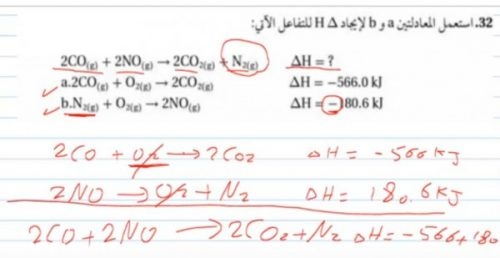 32. استعمل المعادلتين a و b لإيجاد Δ H للتفاعل الآتي:
2CO(g) + 2NO(g) → 2CO2(g) + N2(g) ΔH = ?
a.2CO(g) + O2(g) → 2CO2(g) ΔH = −566.0 kJ
b.N2(g) + O2(g) → 2NO(g) ΔH = −180.6 kJ
2CO + O2 → 2CO2 ΔH = -566 KJ
2NO → O2 + N2 ΔH = 180.6 KJ
2CO + 2NO → 2CO2 + N2 ΔH = -566+180